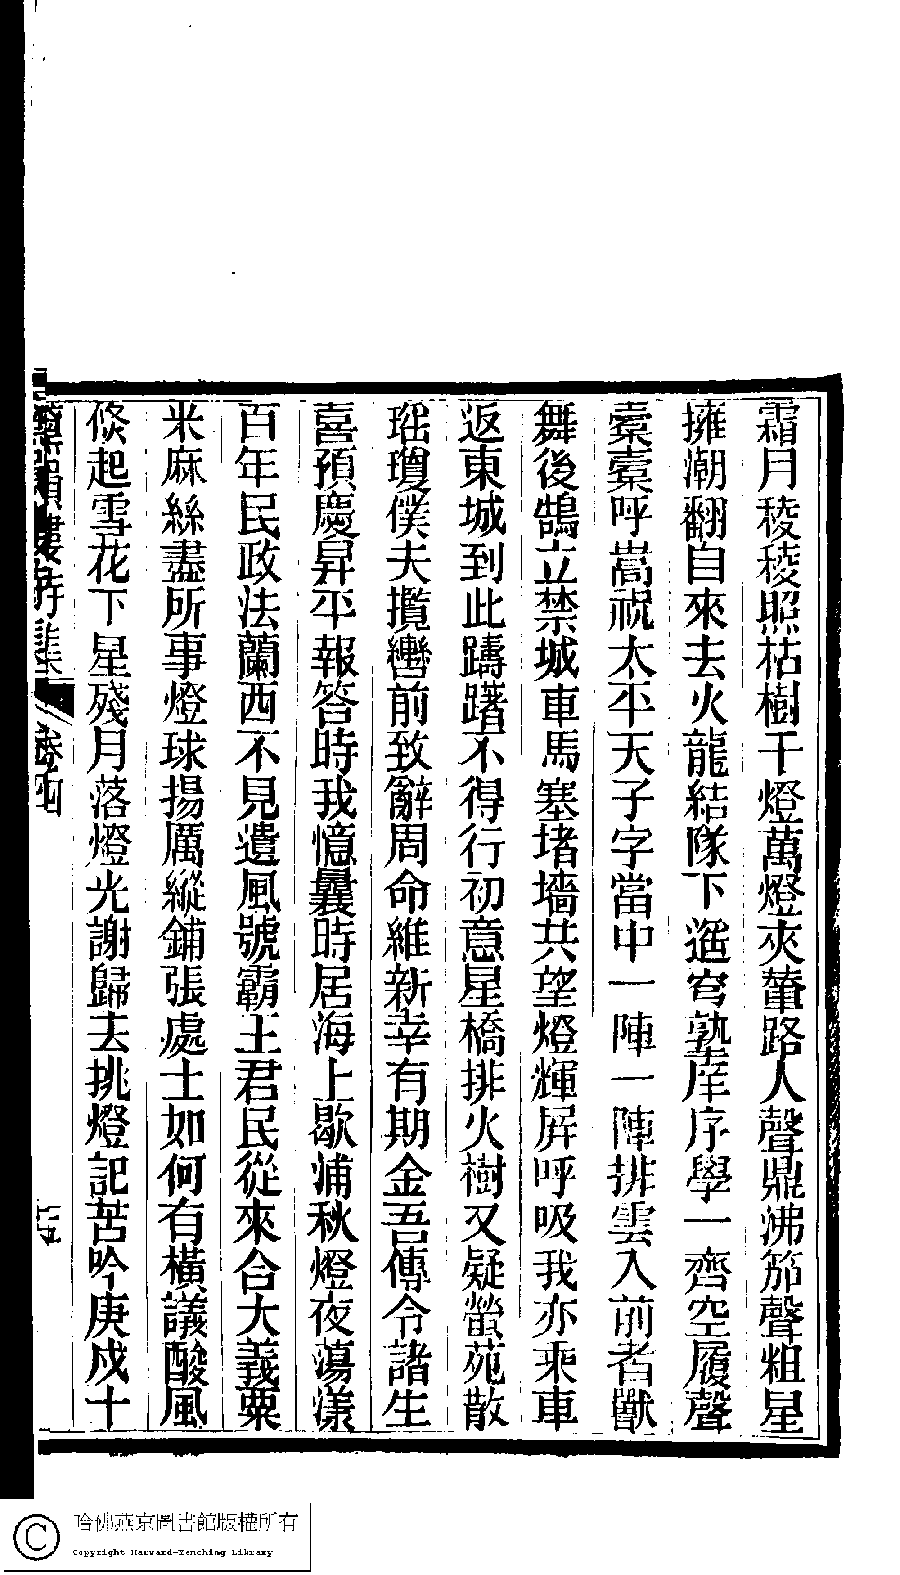 霜月稜稜照枯樹千燈萬燈夾輦路人聲鼎沸笳聲粗星
擁潮翻自來去火龍結隊下遥穹塾庠序學一齊空履聲
橐橐呼嵩祝太平天子字當中一陣一陣排雲入前者獸
舞後鵠立禁城車馬塞堵墻共望燈輝屏呼吸我亦乘車
返東城到此躊躇不得行初意星橋排火樹又疑螢苑散
瑶瓊僕夫攬轡前致辭周命維新幸有期金吾傳令諸生
喜預慶昇平報答時我憶曩時居海上歇浦秋燈夜蕩漾
百年民政法蘭西不見遺風號霸王君民從來合大義粟
米麻絲盡所事燈球揚厲縱鋪張處士如何有橫議酸風
倐起雪花下星殘月落燈光謝歸去挑燈記苦吟庚戍十
韻樓詩集
卷四
哈佛燕京圖書館版權所有
Copyright Harvard-Yenching Library